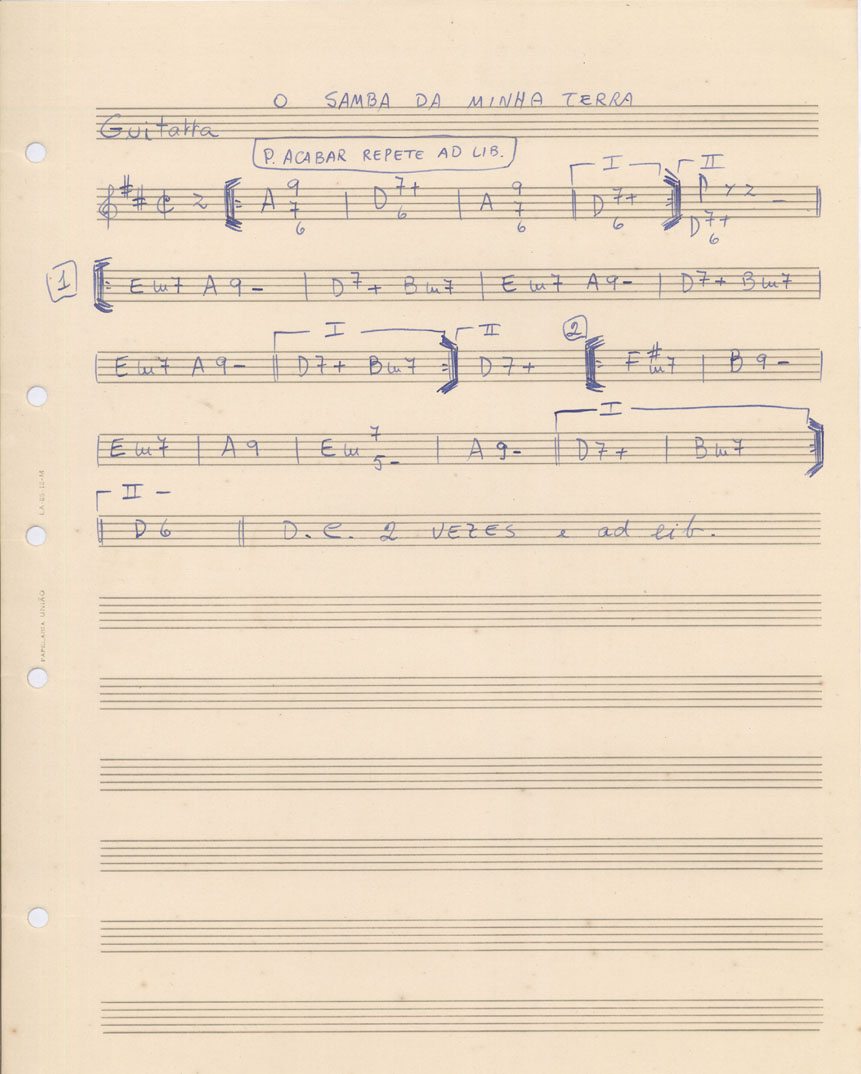 O SAMBA DA MINHA TERRA
Guitarra
P. ACABAR REPETE AD LIB.
I II
A 9 7 6 | D 7+ 6 | A 9 7 6 || D 7+ 6 D 7+ 6
1 Em7 A9- | D7+ Bm7 | Em7 A9- | D7+ Bm7
I II 2
Em7 A9- || D7+ Bm7 D7+ F#m7 | B9-
I
Em7 | A9 | Em 7 5- | A9- || D7+ | Bm7
II -
D6 || D.C. 2 VEZES e ad lib.
PAPELARIA UNIÃO